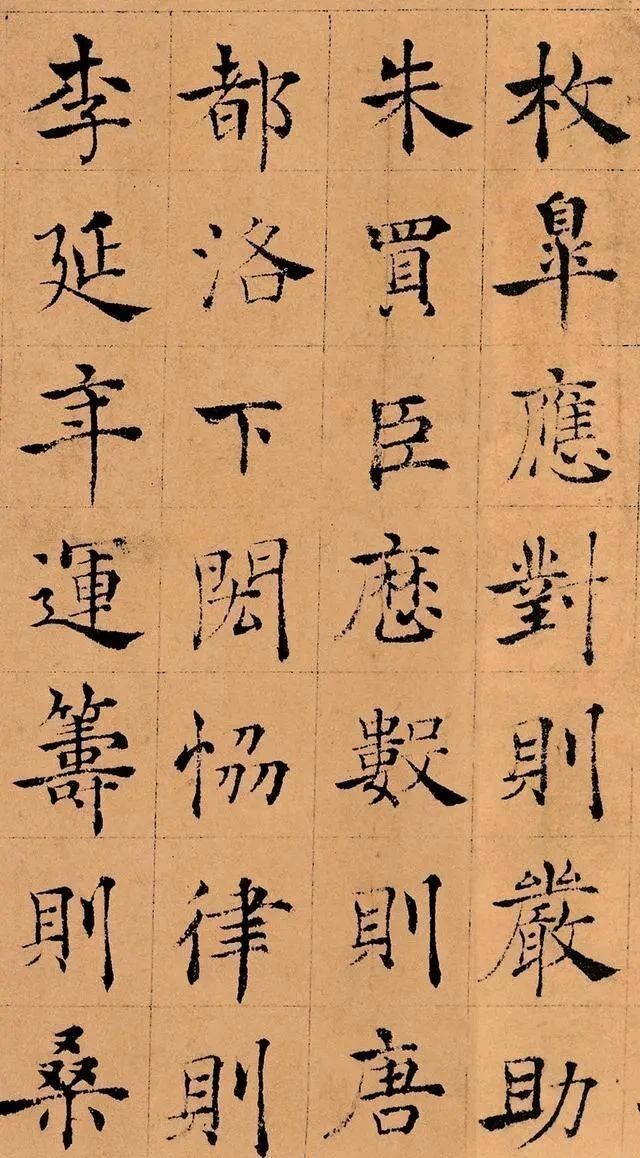 枚皐應對則嚴助
朱買臣歷數則唐
都洛下閎恊律則
李延年運籌則桑